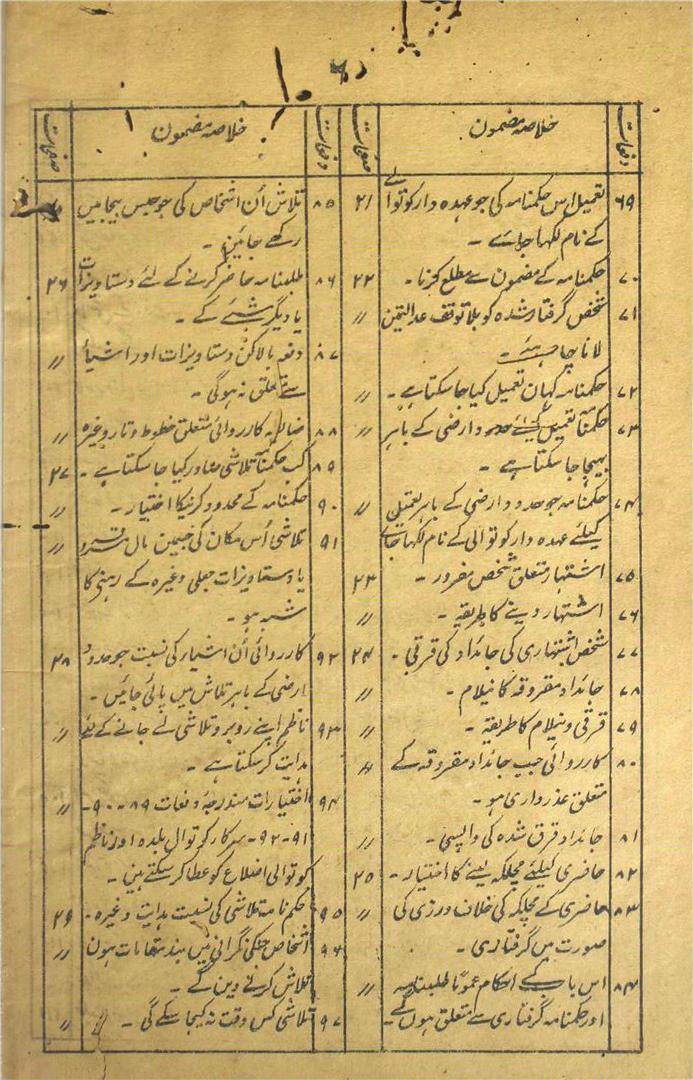 دفعات خلاصہ مضمون صفحات
۶۹ تعمیل اس حکمنامہ کی جو عہدہ دار کوتوالی ۲۱
کے نام لکھا جائے ۔
۷۰ حکمنامہ کے مضمون سے مطلع کرنا ۔ ۲۲
۷۱ شخص گرفتار شدہ کو بلا توقف عدالتمین 〃
لانا چاہئے ۔
۷۲ حکمنامہ کہان تعمیل کیا جا سکتا ہے ۔ 〃
۷۳ حکمنامہ تعمیل کیلئے حدود ارضی کے باہر 〃
بھیجا جا سکتا ہے ۔
۷۴ حکمنامہ جو حدود ارضی کے باہر تعمیل 〃
کیلئے عہدہ دار کوتوالی کے نام لکھا جائے
۷۵ اشتہار متعلق شخص مفرور ۔ ۲۳
۷۶ اشتہار دینے کا طریقہ ۔ 〃
۷۷ شخص اشتہاری کی جائداد کی قرقی ۔ ۲۴
۷۸ جائداد مقروقہ کا نیلام ۔ 〃
۷۹ قرقی و نیلام کا طریقہ ۔ 〃
۸۰ کارروائی جب جائداد مقروقہ کے 〃
متعلق عذرداری ہو ۔
۸۱ جائداد قرق شدہ کی واپسی ۔ 〃
۸۲ حاضری کیلئے مچلکہ لینے کا اختیار ۔ ۲۵
۸۳ حاضری کے مچلکہ کی خلاف ورزی کی 〃
صورت میں گرفتاری ۔
۸۴ اس باب کے احکام عموماً طلبنامہ 〃
اور حکمنامہ گرفتاری سے متعلق ہوں گے ۔
دفعات خلاصہ مضمون صفحات
۸۵ تلاش اُن اشخاص کی جو حبس بیجا میں
رکھے جائیں ۔
۸۶ طلبنامہ حاضر کرنے کے لئے دستاویزات ۲۶
یا دیگر شئے کے ۔
۸۷ دفعہ بالا کن دستاویزات اور اشیاء 〃
سے متعلق نہ ہوگی ۔
۸۸ ضابطہ کارروائی متعلق خطوط و تار وغیرہ 〃
۸۹ کب حکمنامہ تلاشی صادر کیا جا سکتا ہے ۔ ۲۷
۹۰ حکمنامہ کے محدود کرنیکا اختیار ۔ 〃
۹۱ تلاشی اُس مکان کی جسمین مال مسروقہ 〃
یا دستاویزات جعلی وغیرہ کے رہنے کا
شبہ ہو ۔
۹۲ کارروائی اُن اشیاء کی نسبت جو حدود ۲۸
ارضی کے باہر تلاش میں پائی جائیں ۔
۹۳ ناظم اپنے روبرو تلاشی لے جانے کے لئے 〃
ہدایت کر سکتا ہے ۔
۹۴ اختیارات مندرجہ دفعات ۸۹ ۔ ۹۰ ۔ 〃
۹۱ ۔ ۹۲ ۔ سرکار کوتوال بلدہ اور ناظم
کوتوالی اضلاع کو عطا کر سکتے ہین ۔
۹۵ حکم نامہ تلاشی کی نسبت ہدایت وغیرہ ۔ ۲۹
۹۶ اشخاص جنکی نگرانی میں بند مقامات ہون 〃
تلاش کرنے دین گے ۔
۹۷ تلاشی کس وقت نہ کیجا سکے گی ۔ 〃